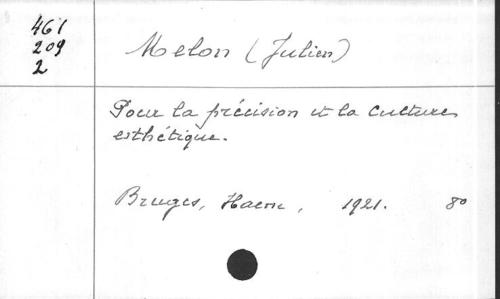 461
209
2
Melon (Julien)
Pour la précision et la culture
esthétique.
Bruges, Haene, 1921. 8º